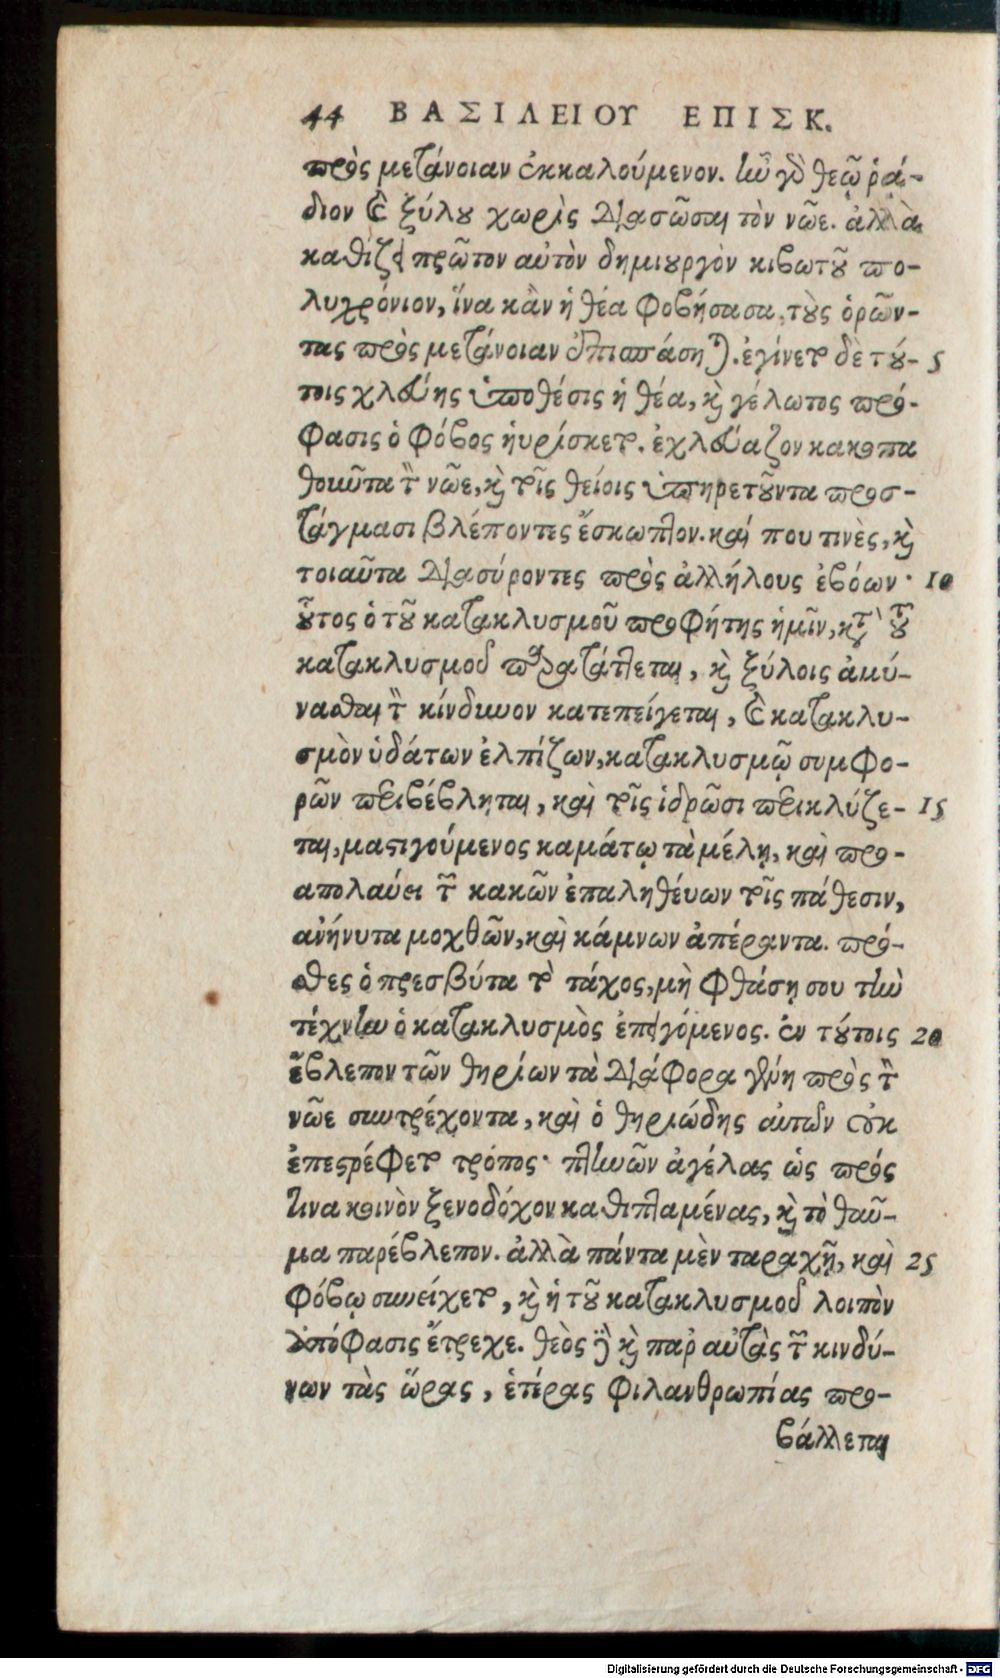 44 ΒΑΣΙΛΕΙΟΥ ΕΠΙΣΚ.
πρὸς μετάνοιαν ἐκκαλούμενον. ἦν γὰρ θεῷ ῥᾴ-
διον καὶ ξύλου χωρὶς διασῶσαι τὸν νῶε. ἀλλὰ
καθίζει πρῶτον αὐτὸν δημιουργὸν κιβωτοῦ πο-
λυχρόνιον, ἵνα κἂν ἡ θέα φοβήσασα τοὺς ὁρῶν-
τας πρὸς μετάνοιαν ἐπισπάσηται. ἐγίνετο δὲ τού- 5
τοις χλεύης ὑποθέσις ἡ θέα, καὶ γέλωτος πρό-
φασις ὁ φόβος ηὑρίσκετο. ἐχλεύαζον κακοπα
θοῦντα τὸν νῶε, καὶ τοῖς θείοις ὑπηρετοῦντα προσ-
τάγμασι βλέποντες ἔσκωπτον. καί που τινὲς, καὶ
τοιαῦτα διασύροντες πρὸς ἀλλήλους ἐβόων· 10
οὗτος ὁ τοῦ κατακλυσμοῦ προφήτης ἡμῖν, κατὰ τοῦ
κατακλυσμοῦ παρατάττεται, καὶ ξύλοις ἀμύ-
νασθαι τὸν κίνδυνον κατεπείγεται, καὶ κατακλυ-
σμὸν ὑδάτων ἐλπίζων, κατακλυσμῷ συμφο-
ρῶν περιβέβληται, καὶ τοῖς ἱδρῶσι περικλύζε- 15
ται, μαστιγούμενος καμάτῳ τὰ μέλη, καὶ προ-
απολαύει τῶν κακῶν ἐπαληθεύων τοῖς πάθεσιν,
ἀνήνυτα μοχθῶν, καὶ κάμνων ἀπέραντα. πρό-
σθες ὁ πρεσβύτα τὸ τάχος, μὴ φθάσῃ σου τὴν
τέχνην ὁ κατακλυσμὸς ἐπειγόμενος. ἐν τούτοις 20
ἔβλεπον τῶν θηρίων τὰ διάφορα γένη πρὸς τὸν
νῶε συντρέχοντα, καὶ ὁ θηριώδης αὐτῶν οὐκ
ἐπεστρέφετο τρόπος· πτηνῶν ἀγέλας ὡς πρός
τινα κοινὸν ξενοδόχον καθιπταμένας, καὶ τὸ θαῦ-
μα παρέβλεπον. ἀλλὰ πάντα μὲν ταραχῇ, καὶ 25
φόβῳ συνείχετο, καὶ ἡ τοῦ κατακλυσμοῦ λοιπὸν
ἀπόφασις ἔτρεχε. θεὸς δὲ καὶ παρ αὐτὰς τῶν κινδύ-
νων τὰς ὥρας, ἑτέρας φιλανθρωπίας προ-
βάλλεται
Digitalisierung gefördert durch die Deutsche Forschungsgemeinschaft - DFG